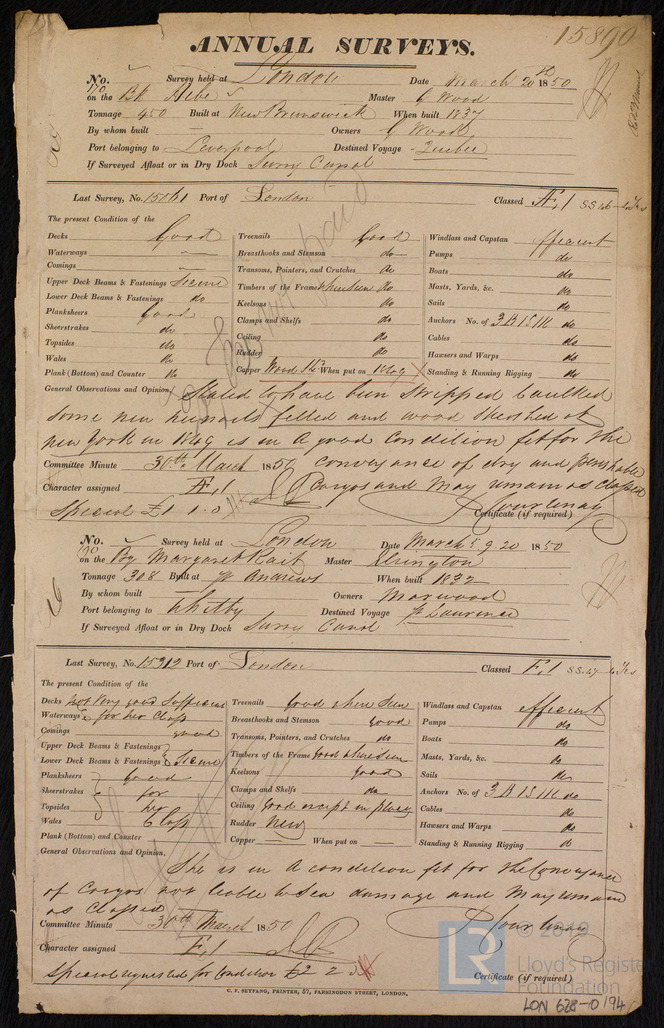 15890
ANNUAL SURVEYS.
No. 170 Survey held at London Date March 20th 1850
on the Bk Hebe Master G Wood
Tonnage 450 Built at New Brunswick When built 1837
By whom built — Owners G Wood
Port belonging to Liverpool Destined Voyage Quebec
If Surveyed Afloat or in Dry Dock Surry Canal
Last Survey, No. 15061 Port of London Classed Æ 1 SS 46-
The present Condition of the
Decks Good Treenails Good Windlass and Capstan efficient
Waterways — Breasthooks and Stemson do Pumps do
Comings — Transoms, Pointers, and Crutches do Boats do
Upper Deck Beams & Fastenings Seeme Timbers of the Frame where seen do Masts, Yards, &c. do
Lower Deck Beams & Fastenings do Keelsons do Sails do
Planksheers good Clamps and Shelfs do Anchors No. of 3 B 1 S 1 K do
Sheerstrakes do Ceiling do Cables do
Topsides do Rudder do Hawsers and Warps do
Wales do Copper Wood When put on 1849 Standing & Running Rigging do
Plank (Bottom) and Counter do
General Observations and Opinion, Stated to have been stripped caulked
some new fitted and wood sheathed at
New York in 1849 is in a good condition fit for the
Committee Minute 30th March 1850 conveyance of dry and perishable
Character assigned Æ 1 Cargos and may remain as classed
Special £1 1.0 Courtenay
Certificate (if required)
No. 190 Survey held at London Date March 5 9 20 1850
on the Bg Margaret Rait Master
Tonnage 308 Built at St Andrews When built 1832
By whom built — Owners Marwood
Port belonging to Whitby Destined Voyage St Lawrence
If Surveyed Afloat or in Dry Dock Surry Canal
Last Survey, No. 15312 Port of London Classed E 1 SS 47-
The present Condition of the
Decks Not very good Sufficient Treenails good where seen Windlass and Capstan efficient
Waterways for her Class Breasthooks and Stemson good Pumps do
Comings good Transoms, Pointers, and Crutches do Boats do
Upper Deck Beams & Fastenings Timbers of the Frame good where seen Masts, Yards, &c. do
Lower Deck Beams & Fastenings Seeme Keelsons good Sails do
Planksheers good Clamps and Shelfs do Anchors No. of 3 B 1 S 1 K do
Sheerstrakes for Ceiling good except in places Cables do
Topsides her Rudder New Hawsers and Warps do
Wales Class Copper — When put on — Standing & Running Rigging do
Plank (Bottom) and Counter
General Observations and Opinion,
She is in a condition fit for the Conveyance
of Cargos not liable to Sea damage and may remain
as Classed
Committee Minute 30th March 1850 Courtenay
Character assigned E 1
Special requested for Condition £2 2 0
Certificate (if required)
C. F. SEYFANG, PRINTER, 57, FARRINGDON STREET, LONDON.
© 2019
LR
Lloyd's Register
Foundation
LON 628-0194